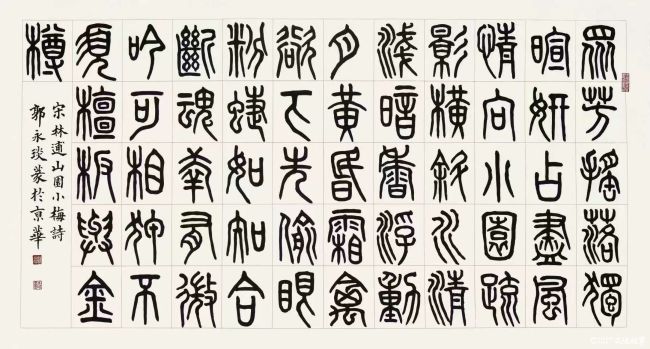 眾芳搖落獨
暄妍占盡風
情向小園疏
影橫斜水清
淺暗香浮動
月黃昏霜禽
欲下先偷眼
粉蜨如知合
斷魂幸有微
吟可相狎不
須檀板與金
樽
宋林逋山園小梅詩
郭永琰篆於京華